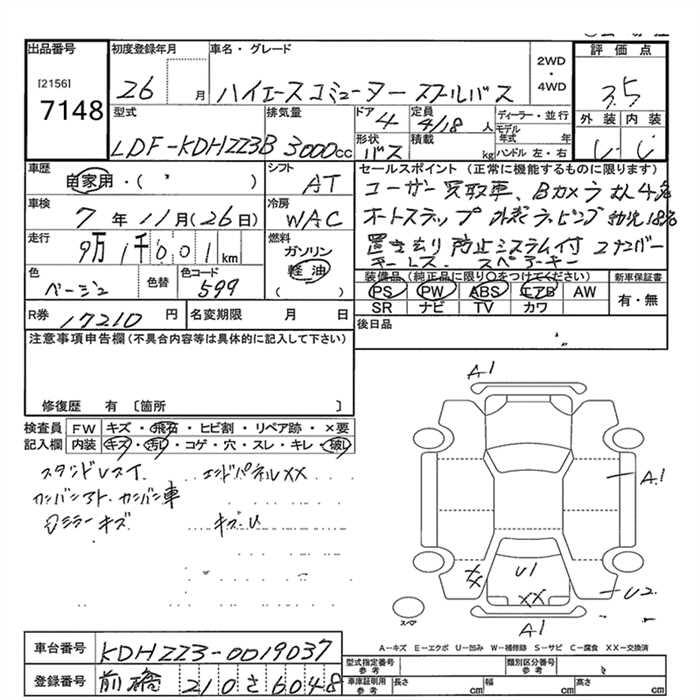 出品番号
[2156]
7148
初度登録年月
26 月
車名・グレード
ハイエースコミューター スクールバス
2WD
・
4WD
評価点
3.5
外装 内装
型式
LDF-KDH223B
排気量
3000cc
ドア
4
定員
4/18人
ディーラー・並行
モデル
年式 年
ハンドル 左・右
形状
バス
積載
kg
車歴
自家用・( )
シフト
AT
車検
7年11月(26日)
冷房
WAC
走行
9万1千001km
燃料
ガソリン
軽油
( )
色
ベージュ
色替
色コード
599
R券
17210円
名変期限 月 日
セールスポイント(正常に機能するものに限ります)
ユーザー買取車、Bカメラ 大人4名
オートステップ 外装ラッピング 幼児18名
置き去り防止システム付 2ナンバー
キーレス、スペアーキー
装備品(純正品に限り○をつけてください)
PS PW ABS エアB AW
SR ナビ TV カワ
新車保証書
有・無
後日品
注意事項申告欄(不具合内容等は具体的に記入して下さい)
修復歴 有〔箇所 〕
検査員
記入欄
FW キズ・飛石・ヒビ割・リペア跡・×要
内装 キズ・汚れ・コゲ・穴・スレ・キレ・破レ
エンドパネルXX
カンバンアト、カンバン車
ミラーキズ
キズ.U
A1
A1
U1
XX
XX
U2
A1
スペア
A-キズ E-エクボ U-凹み W-補修跡 S-サビ C-腐食 XX-交換済
車台番号
KDH223-0019037
登録番号
前橋 210 さ 6048
型式指定番号
参考
類別区分番号
参考
車庫証明用
参考
長さ cm
幅 cm
高さ cm